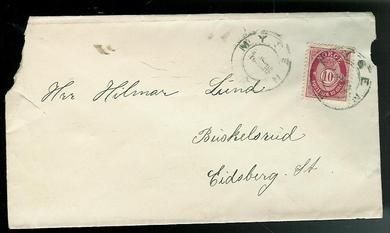 MYSEN
NORGE
10
Herr Hilmar Lund
Buskelsrud
Eidsberg. St.